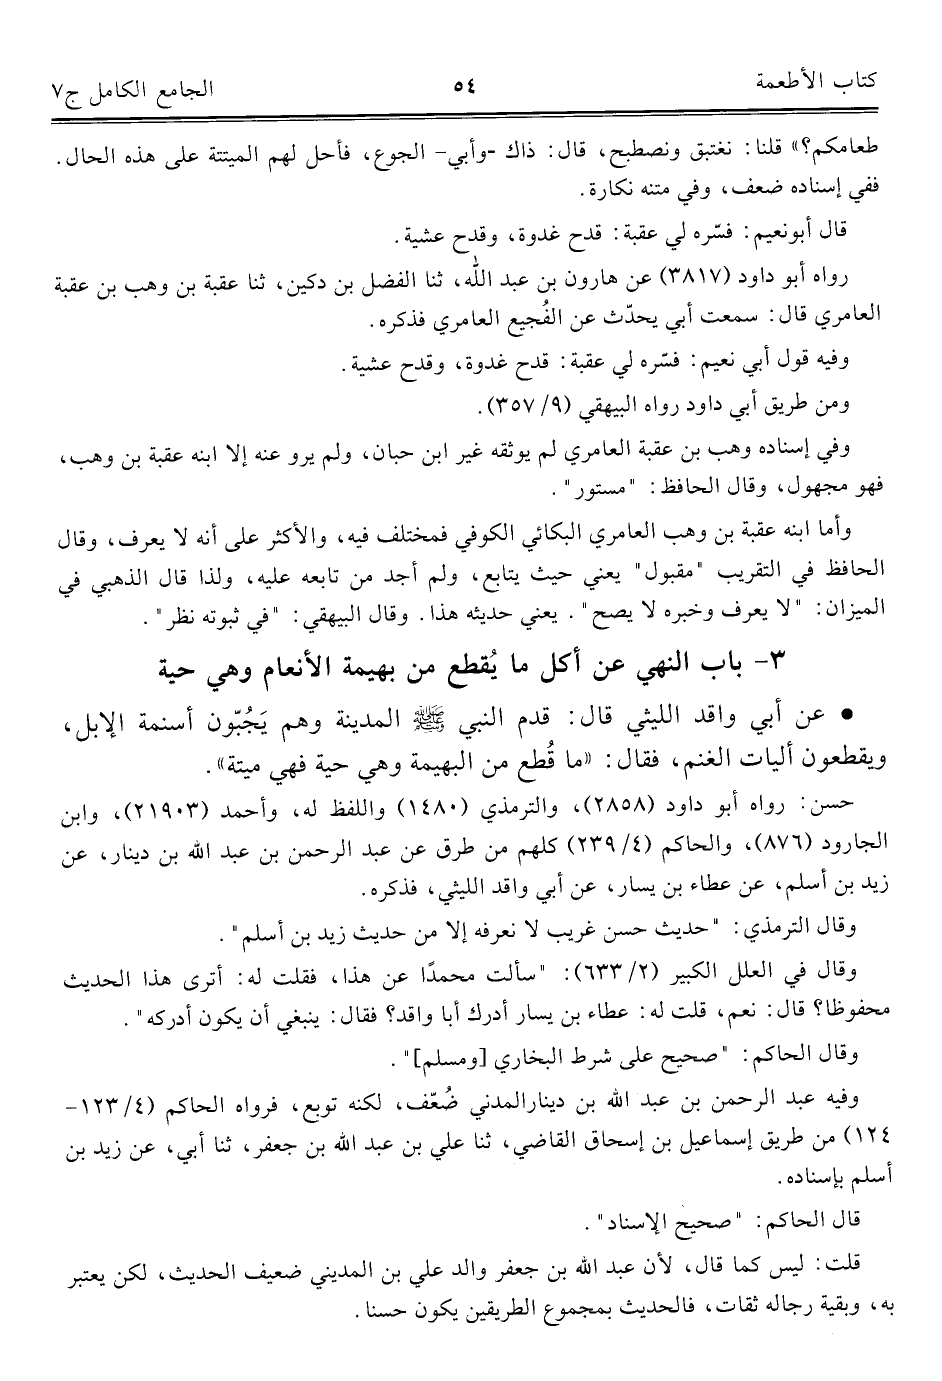 كتاب الأطعمة ٥٤ الجامع الكامل ج٧
طعامكم؟» قلنا: نغتبق ونصطبح، قال: ذاك -وأبي- الجوع، فأحل لهم الميتتة على هذه الحال.
ففي إسناده ضعف، وفي متنه نكارة.
قال أبونعيم: فسّره لي عقبة: قدح غدوة، وقدح عشية.
رواه أبو داود (٣٨١٧) عن هارون بن عبد الله، ثنا الفضل بن دكين، ثنا عقبة بن وهب بن عقبة
العامري قال: سمعت أبي يحدّث عن الفُجيع العامري فذكره.
وفيه قول أبي نعيم: فسّره لي عقبة: قدح غدوة، وقدح عشية.
ومن طريق أبي داود رواه البيهقي (٩/ ٣٥٧).
وفي إسناده وهب بن عقبة العامري لم يوثقه غير ابن حبان، ولم يرو عنه إلا ابنه عقبة بن وهب،
فهو مجهول، وقال الحافظ: "مستور".
وأما ابنه عقبة بن وهب العامري البكائي الكوفي فمختلف فيه، والأكثر على أنه لا يعرف، وقال
الحافظ في التقريب "مقبول" يعني حيث يتابع، ولم أجد من تابعه عليه، ولذا قال الذهبي في
الميزان: "لا يعرف وخبره لا يصح". يعني حديثه هذا. وقال البيهقي: "في ثبوته نظر".
٣- باب النهي عن أكل ما يُقطع من بهيمة الأنعام وهي حية
• عن أبي واقد الليثي قال: قدم النبي ﷺ المدينة وهم يَجُبّون أسنمة الإبل،
ويقطعون أليات الغنم، فقال: «ما قُطع من البهيمة وهي حية فهي ميتة».
حسن: رواه أبو داود (٢٨٥٨)، والترمذي (١٤٨٠) واللفظ له، وأحمد (٢١٩٠٣)، وابن
الجارود (٨٧٦)، والحاكم (٤/ ٢٣٩) كلهم من طرق عن عبد الرحمن بن عبد الله بن دينار، عن
زيد بن أسلم، عن عطاء بن يسار، عن أبي واقد الليثي، فذكره.
وقال الترمذي: "حديث حسن غريب لا نعرفه إلا من حديث زيد بن أسلم".
وقال في العلل الكبير (٢/ ٦٣٣): "سألت محمدًا عن هذا، فقلت له: أترى هذا الحديث
محفوظا؟ قال: نعم، قلت له: عطاء بن يسار أدرك أبا واقد؟ فقال: ينبغي أن يكون أدركه".
وقال الحاكم: "صحيح على شرط البخاري [ومسلم]".
وفيه عبد الرحمن بن عبد الله بن دينارالمدني ضُعّف، لكنه توبع، فرواه الحاكم (٤/ ١٢٣-
١٢٤) من طريق إسماعيل بن إسحاق القاضي، ثنا علي بن عبد الله بن جعفر، ثنا أبي، عن زيد بن
أسلم بإسناده.
قال الحاكم: "صحيح الإسناد".
قلت: ليس كما قال، لأن عبد الله بن جعفر والد علي بن المديني ضعيف الحديث، لكن يعتبر
به، وبقية رجاله ثقات، فالحديث بمجموع الطريقين يكون حسنا.